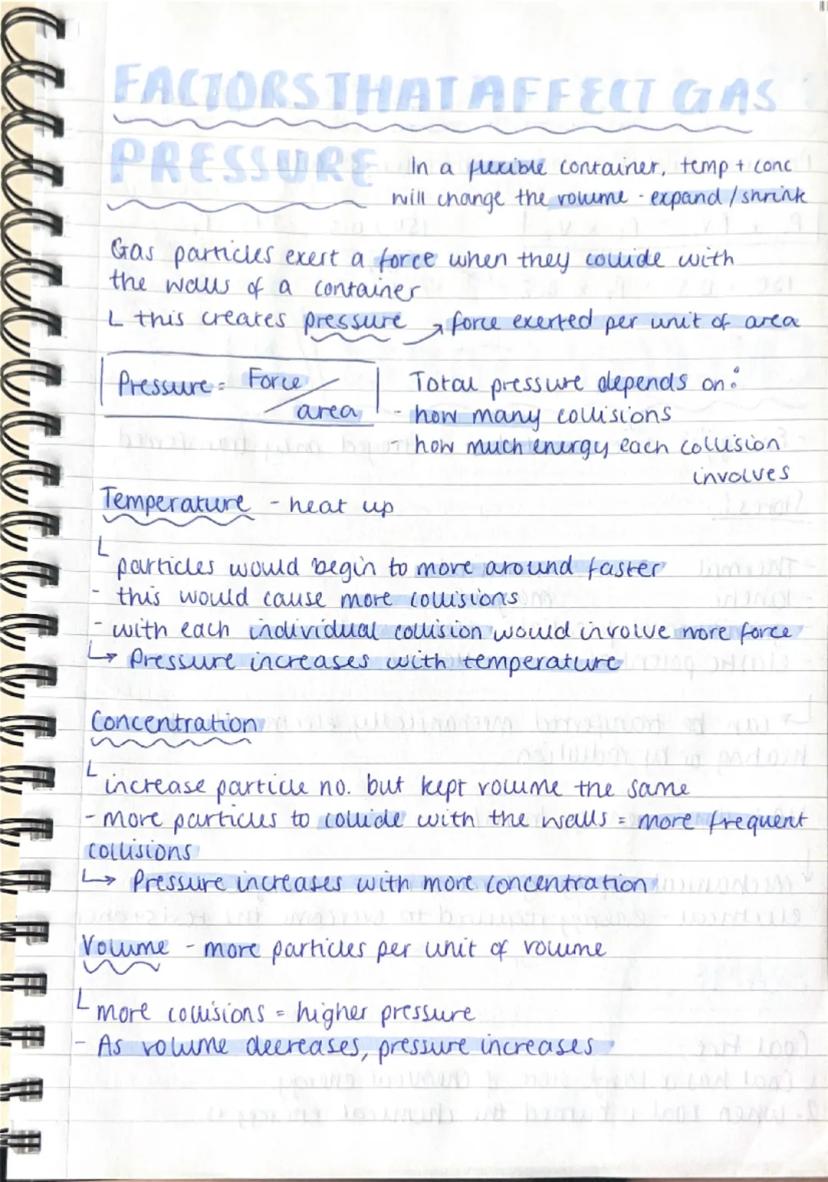 FACTORS THAT AFFECT GAS
PRESSURE
In a flexible container, temp + conc
will change the volume - expand/shrink
Gas particles exert a force when they collide with
the walls of a container
L this creates pressure → force exerted per unit of area
Pressure = Force / area
Total pressure depends on:
- how many collisions
- how much energy each collision
involves
Temperature - heat up
L particles would begin to more around faster
- this would cause more collisions
- with each individual collision would involve more force
↳ Pressure increases with temperature
Concentration
L increase particle no. but kept volume the same
- More particles to collide with the walls = more frequent
collisions
↳ Pressure increases with more concentration
Volume - more particles per unit of volume
L more collisions = higher pressure
- As volume decreases, pressure increases